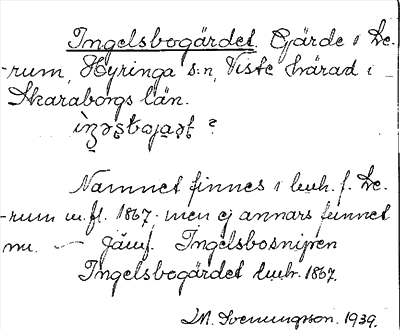 Ingelsbogärdet. Gärde i De-
rum, Hyringa s:n, Viste härad i
Skaraborgs län.
?
Namnet finnes i lmh. f. De-
rum m. fl. 1867, men ej annars funnet
nu. — Jämf. Ingelsbosnipen
Ingelsbogärdet lmhr. 1867.
M. Svenungson. 1939.